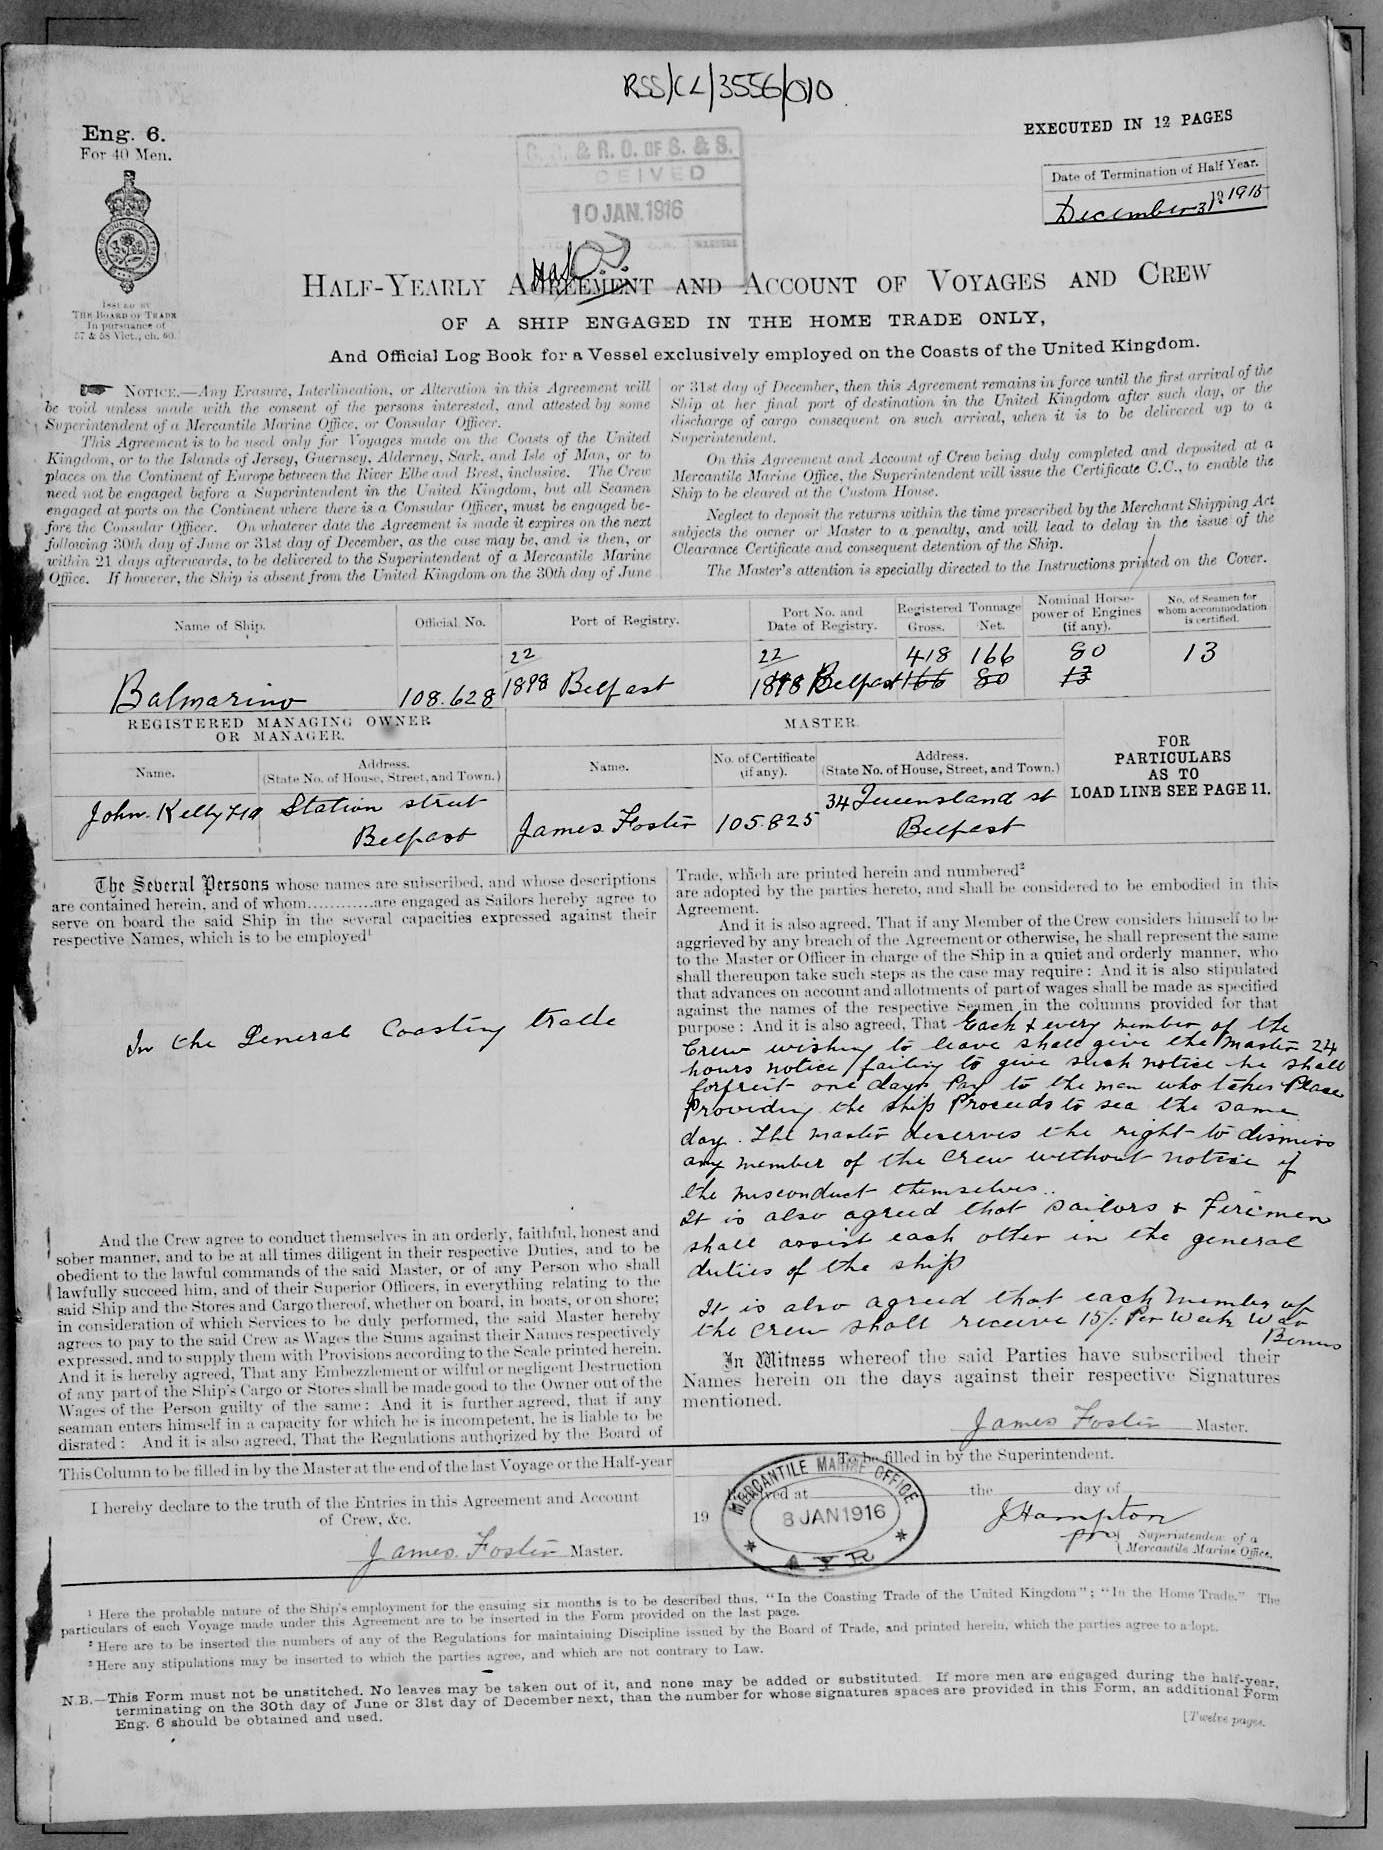 RSS/CL/3556/010
Eng. 6.
For 40 Men.
EXECUTED IN 12 PAGES
Date of Termination of Half Year.
December 31st 1915
& R. O. OF S. & S.
CEIVED
10 JAN. 1916
ISSUED BY
THE BOARD OF TRADE
In pursuance of
57 & 58 Vict., ch. 60.
HALF-YEARLY AGREEMENT AND ACCOUNT OF VOYAGES AND CREW
OF A SHIP ENGAGED IN THE HOME TRADE ONLY,
And Official Log Book for a Vessel exclusively employed on the Coasts of the United Kingdom.
NOTICE.—Any Erasure, Interlineation, or Alteration in this Agreement will
be void unless made with the consent of the persons interested, and attested by some
Superintendent of a Mercantile Marine Office, or Consular Officer.
This Agreement is to be used only for Voyages made on the Coasts of the United
Kingdom, or to the Islands of Jersey, Guernsey, Alderney, Sark, and Isle of Man, or to
places on the Continent of Europe between the River Elbe and Brest, inclusive. The Crew
need not be engaged before a Superintendent in the United Kingdom, but all Seamen
engaged at ports on the Continent where there is a Consular Officer, must be engaged be-
fore the Consular Officer. On whatever date the Agreement is made it expires on the next
following 30th day of June or 31st day of December, as the case may be, and is then, or
within 21 days afterwards, to be delivered to the Superintendent of a Mercantile Marine
Office. If however, the Ship is absent from the United Kingdom on the 30th day of June
or 31st day of December, then this Agreement remains in force until the first arrival of the
Ship at her final port of destination in the United Kingdom after such day, or the
discharge of cargo consequent on such arrival, when it is to be delivered up to a
Superintendent.
On this Agreement and Account of Crew being duly completed and deposited at a
Mercantile Marine Office, the Superintendent will issue the Certificate C.C., to enable the
Ship to be cleared at the Custom House.
Neglect to deposit the returns within the time prescribed by the Merchant Shipping Act
subjects the owner or Master to a penalty, and will lead to delay in the issue of the
Clearance Certificate and consequent detention of the Ship.
The Master's attention is specially directed to the Instructions printed on the Cover.
Name of Ship. Official No. Port of Registry. Port No. and Date of Registry. Registered Tonnage Gross. Net. Nominal Horse-power of Engines (if any). No. of Seamen for whom accommodation is certified.
22 22 418 166 80 13
Balmarino 108.628 1898 Belfast 1898 Belfast 166 80 13
REGISTERED MANAGING OWNER
OR MANAGER.
MASTER.
Name. Address. (State No. of House, Street, and Town.) Name. No. of Certificate (if any). Address. (State No. of House, Street, and Town.)
FOR
PARTICULARS
AS TO
LOAD LINE SEE PAGE 11.
John Kelly Ltd Station street
Belfast
James Foster 105.825
34 Queensland st
Belfast
The Several Persons whose names are subscribed, and whose descriptions
are contained herein, and of whom............are engaged as Sailors hereby agree to
serve on board the said Ship in the several capacities expressed against their
respective Names, which is to be employed¹
In the General Coasting trade
And the Crew agree to conduct themselves in an orderly, faithful, honest and
sober manner, and to be at all times diligent in their respective Duties, and to be
obedient to the lawful commands of the said Master, or of any Person who shall
lawfully succeed him, and of their Superior Officers, in everything relating to the
said Ship and the Stores and Cargo thereof, whether on board, in boats, or on shore;
in consideration of which Services to be duly performed, the said Master hereby
agrees to pay to the said Crew as Wages the Sums against their Names respectively
expressed, and to supply them with Provisions according to the Scale printed herein.
And it is hereby agreed, That any Embezzlement or wilful or negligent Destruction
of any part of the Ship's Cargo or Stores shall be made good to the Owner out of the
Wages of the Person guilty of the same: And it is further agreed, that if any
seaman enters himself in a capacity for which he is incompetent, he is liable to be
disrated: And it is also agreed, That the Regulations authorized by the Board of
Trade, which are printed herein and numbered²
are adopted by the parties hereto, and shall be considered to be embodied in this
Agreement.
And it is also agreed, That if any Member of the Crew considers himself to be
aggrieved by any breach of the Agreement or otherwise, he shall represent the same
to the Master or Officer in charge of the Ship in a quiet and orderly manner, who
shall thereupon take such steps as the case may require: And it is also stipulated
that advances on account and allotments of part of wages shall be made as specified
against the names of the respective Seamen in the columns provided for that
purpose: And it is also agreed, That Each & every member of the
Crew wishing to leave shall give the master 24
hours notice failing to give such notice he shall
forfeit one days Pay to the man who takes Place
Providing the ship Proceeds to sea the same
day. The master deserves the right to dismiss
any member of the crew without notice if
the misconduct themselves.
It is also agreed that sailors & Firemen
shall assist each other in the general
duties of the ship
It is also agreed that each member of
the crew shall receive 15/. Per Week War
Bonus
In Witness whereof the said Parties have subscribed their
Names herein on the days against their respective Signatures
mentioned.
James Foster Master.
This Column to be filled in by the Master at the end of the last Voyage or the Half-year
I hereby declare to the truth of the Entries in this Agreement and Account
of Crew, &c.
James Foster Master.
To be filled in by the Superintendent.
ved at the day of
19
MERCANTILE MARINE OFFICE
8 JAN 1916
AYR
J Hampton
pro Superintendent of a
Mercantile Marine Office.
¹ Here the probable nature of the Ship's employment for the ensuing six months is to be described thus, "In the Coasting Trade of the United Kingdom"; "In the Home Trade." The
particulars of each Voyage made under this Agreement are to be inserted in the Form provided on the last page.
² Here are to be inserted the numbers of any of the Regulations for maintaining Discipline issued by the Board of Trade, and printed herein, which the parties agree to adopt.
³ Here any stipulations may be inserted to which the parties agree, and which are not contrary to Law.
N.B.—This Form must not be unstitched. No leaves may be taken out of it, and none may be added or substituted. If more men are engaged during the half-year,
terminating on the 30th day of June or 31st day of December next, than the number for whose signatures spaces are provided in this Form, an additional Form
Eng. 6 should be obtained and used.
[Twelve pages.